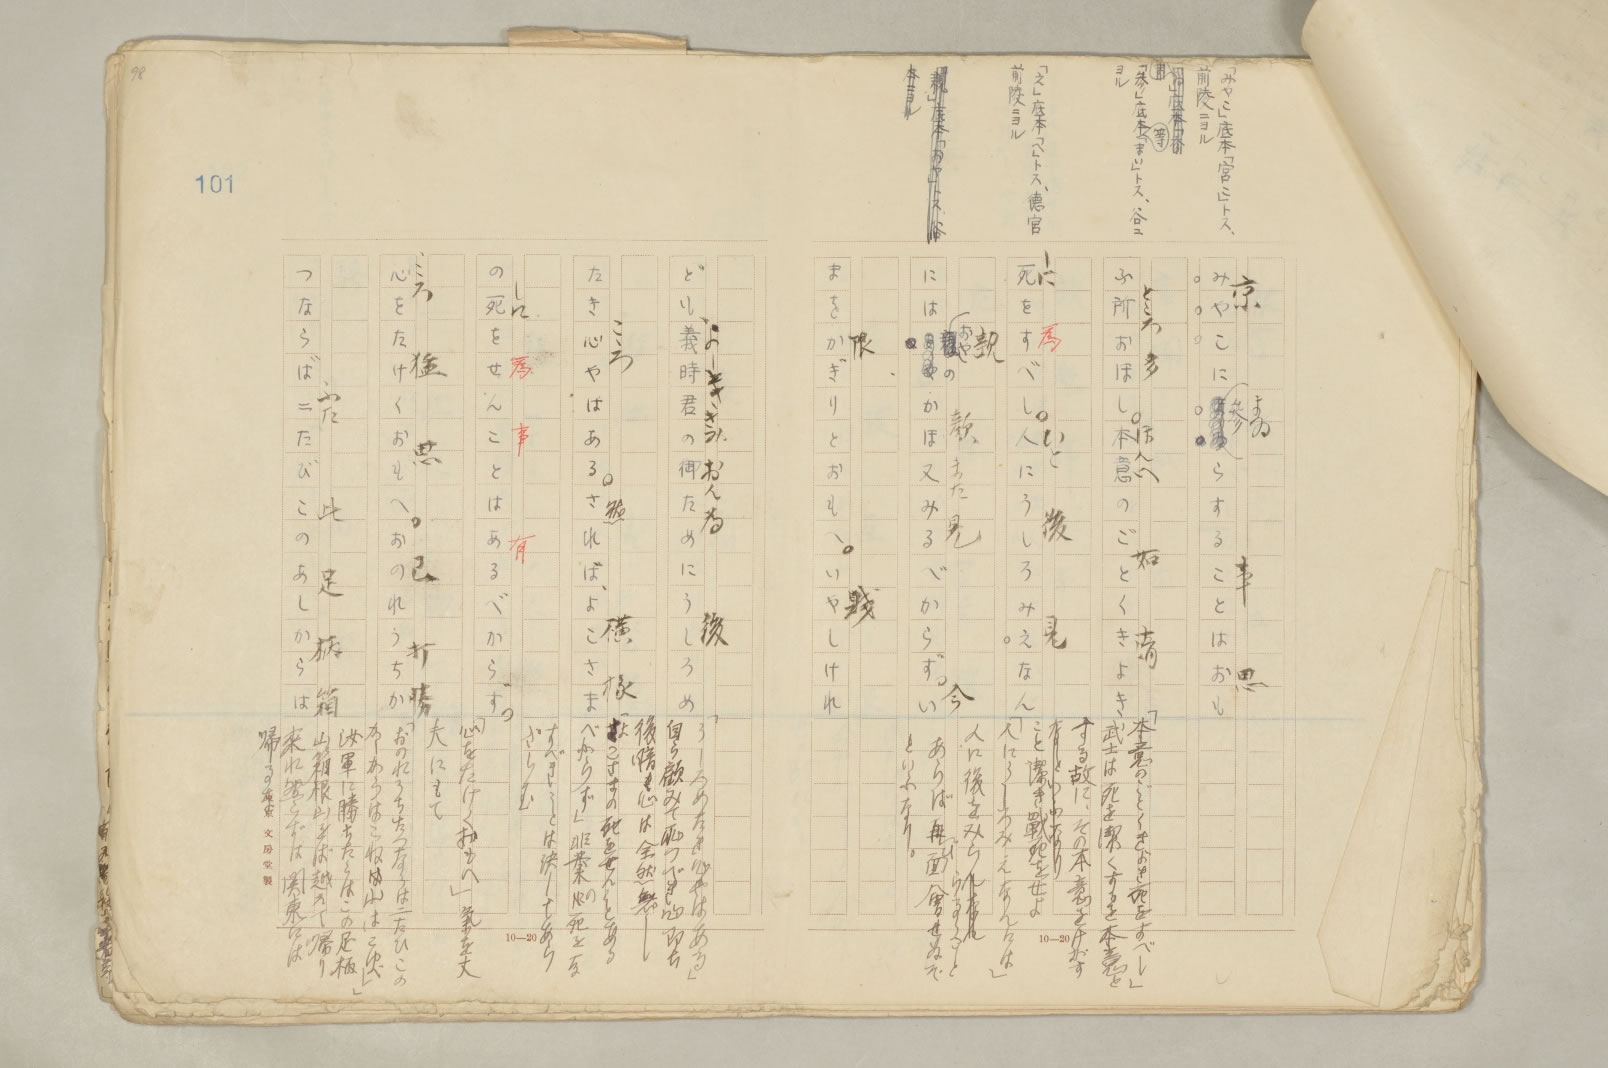 98
101
「みやこ」底本「宮こ」トス、
前陵ニヨル
「参」底本「まい」トス、谷ニ
ヨル
「え」底本「へ」トス、徳官
前陵ニヨル
「親」底本「おや」トス、谷
本ニヨル
まゐ
京
事
思
みやこに参らすることはおも
ところ
多
ほんい
如
清
ふ所おほし。本意のごとくきよき
しに
為
ひと
後
見
死をすべし。人にうしろみえなん
親
おや
の
顔
また
見
今
にはかほ又みるべからず。い
限
賤
まをかぎりとおもへ。いやしけれ
よしときぎみ
おんため
後
ども、義時君の御ためにうしろめ
こころ
然
横
様
たき心やはある。されば、よこさま
しに
為
事
有
の死をせんことはあるべからず。
こころ
猛
思
己
打
勝
心をたけくおもへ。おのれうちか
ふた
此
足
柄
箱
つならば二たびこのあしからは
「本意のごとくきよき死をすべし」
武士は死を潔くするを本意と
する故に、その本意をけがす
こと潔き戦死をせよ
「人にうしろみえなんには」
人に後をみらるること
あらば再び面会せぬぞ
といふなり。
「うしろめたき心やはある」
自ら顧みて恥づべき心即ち
後暗き心は全然無し
「よこさまの死をせんことある
べからず」非業の死を
すべきことは決してあら
ざらむ
「心をたけくおもへ」気を大
丈にもて
「おのれうちかつならは二たひこの
あしからはこね山はこゆ」
汝軍に勝ちたらはこの足柄
山箱根山をば越えて帰り
来れ然らずは関東には
帰るな
10—20
10—20
東京 文房堂製